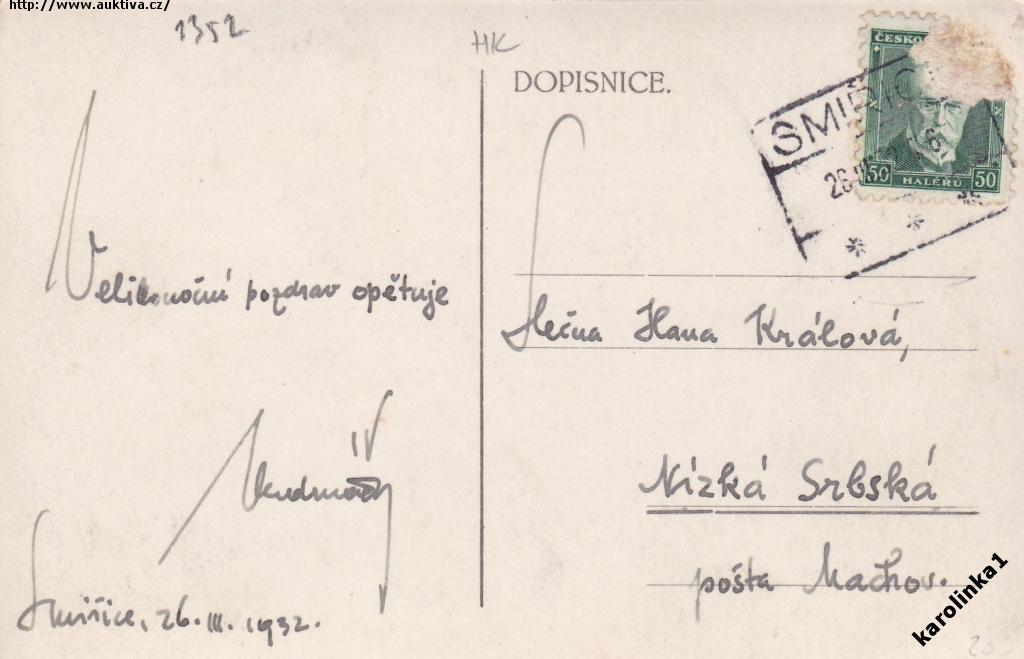 http://www.auktiva.cz/
1352
HK
DOPISNICE.
ČESKO
SMIŘIC
26
50 HALÉŘŮ 50
Velikonoční pozdrav opětuje
Smiřice, 26. III. 1932.
Slečna Hana Králová,
Nízká Srbská
pošta Machov.
karolinka1